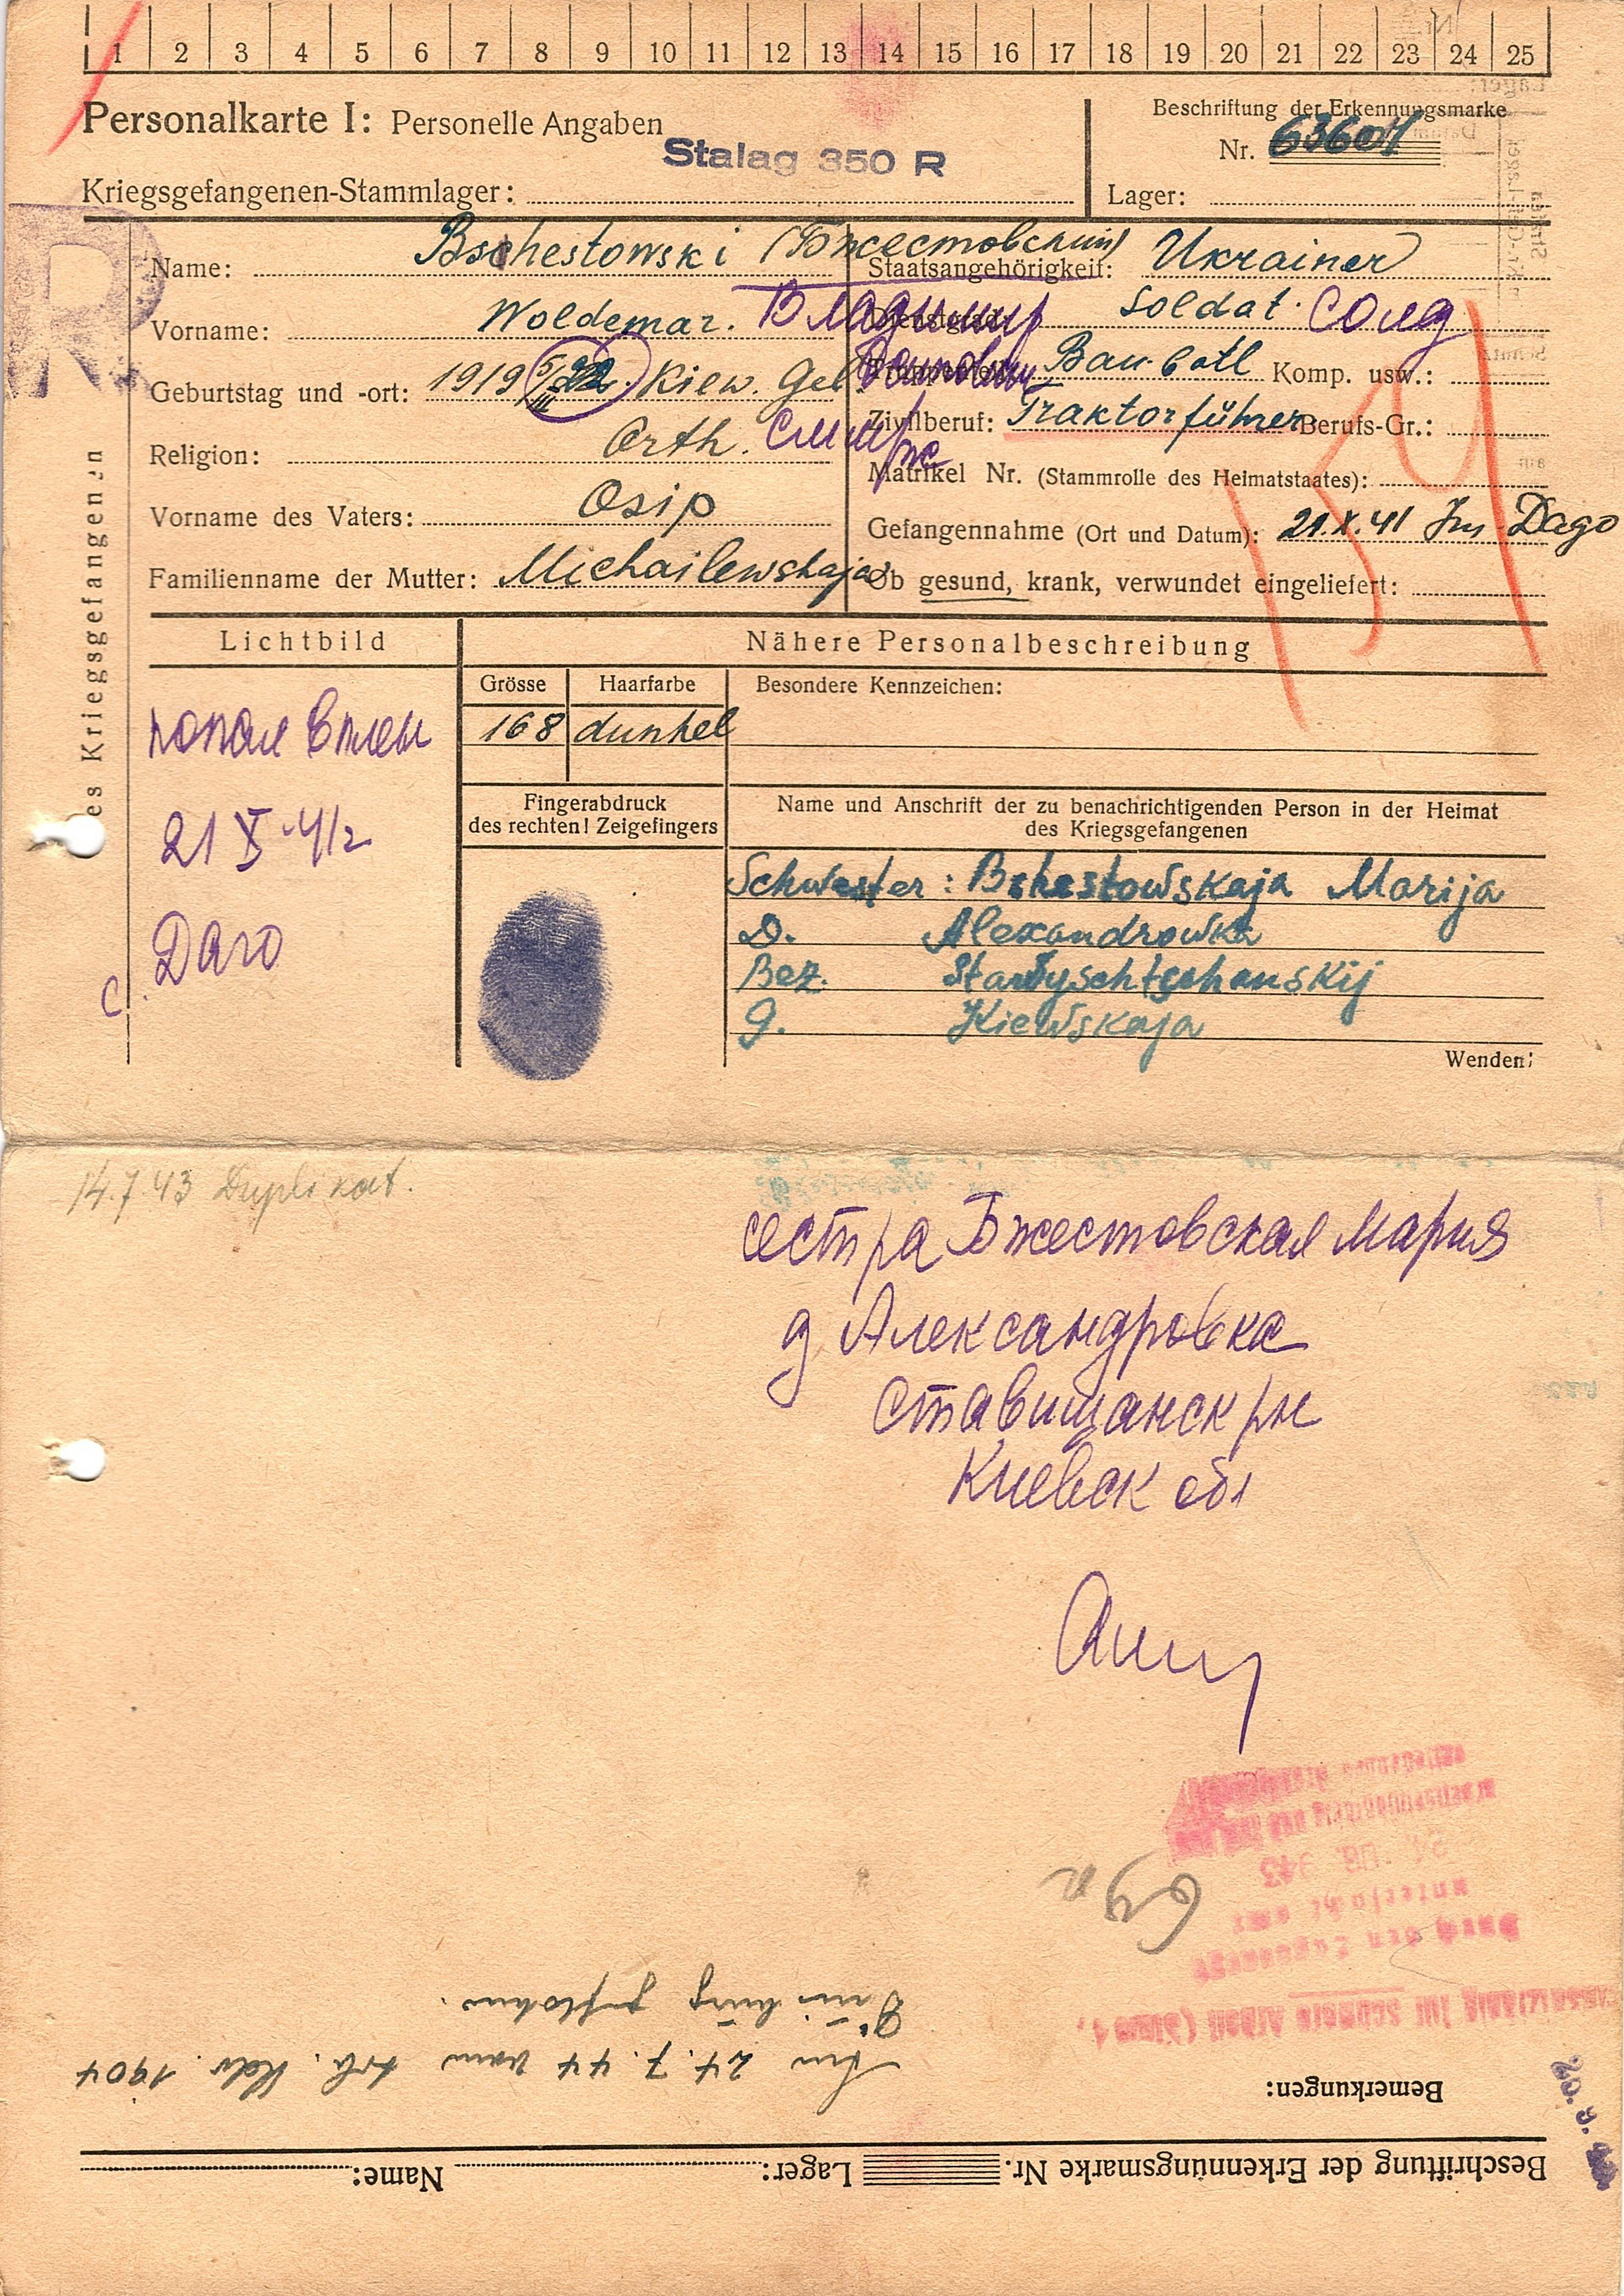 1 2 3 4 5 6 7 8 9 10 11 12 13 14 15 16 17 18 19 20 21 22 23 24 25
Personalkarte I: Personelle Angaben
Beschriftung der Erkennungsmarke
Nr. 63601
Stalag 350 R
Kriegsgefangenen-Stammlager:
Lager:
R
Name: Bschestowski (Бжестовский)
Staatsangehörigkeit: Ukrainer
Vorname: Woldemar. Владимир
Dienstgrad: Soldat. Солд
Geburtstag und -ort: 1919 Kiew. Geb.
Truppenteil: Bau batl Komp. usw.:
Zivilberuf: Traktorführer Berufs-Gr.:
Religion: Orth.
Matrikel Nr. (Stammrolle des Heimatstaates):
Vorname des Vaters: Osip
Gefangennahme (Ort und Datum): 21.X.41 Dago
Familienname der Mutter: Michailewskaja
Ob gesund, krank, verwundet eingeliefert:
des Kriegsgefangenen
Lichtbild
Nähere Personalbeschreibung
Grösse Haarfarbe Besondere Kennzeichen:
168 dunkel
попал в плен
21 X 41г
Даго
Fingerabdruck
des rechten! Zeigefingers
Name und Anschrift der zu benachrichtigenden Person in der Heimat
des Kriegsgefangenen
Schwester: Bshestowskaja Marija
D. Alexandrowka
Bez. Stawyschtschanskij
G. Kiewskaja
Wenden!
14.7.43 Duplikat.
сестра Бжестовская Мария
д Александровка
Ставищанск рн
Киевск обл
Durch den Lagerarzt
untersucht am:
Bemerkungen:
Am 24.7.44 vom Arb. Kdo. 1904
geflohen.
Beschriftung der Erkennungsmarke Nr. Lager: Name: